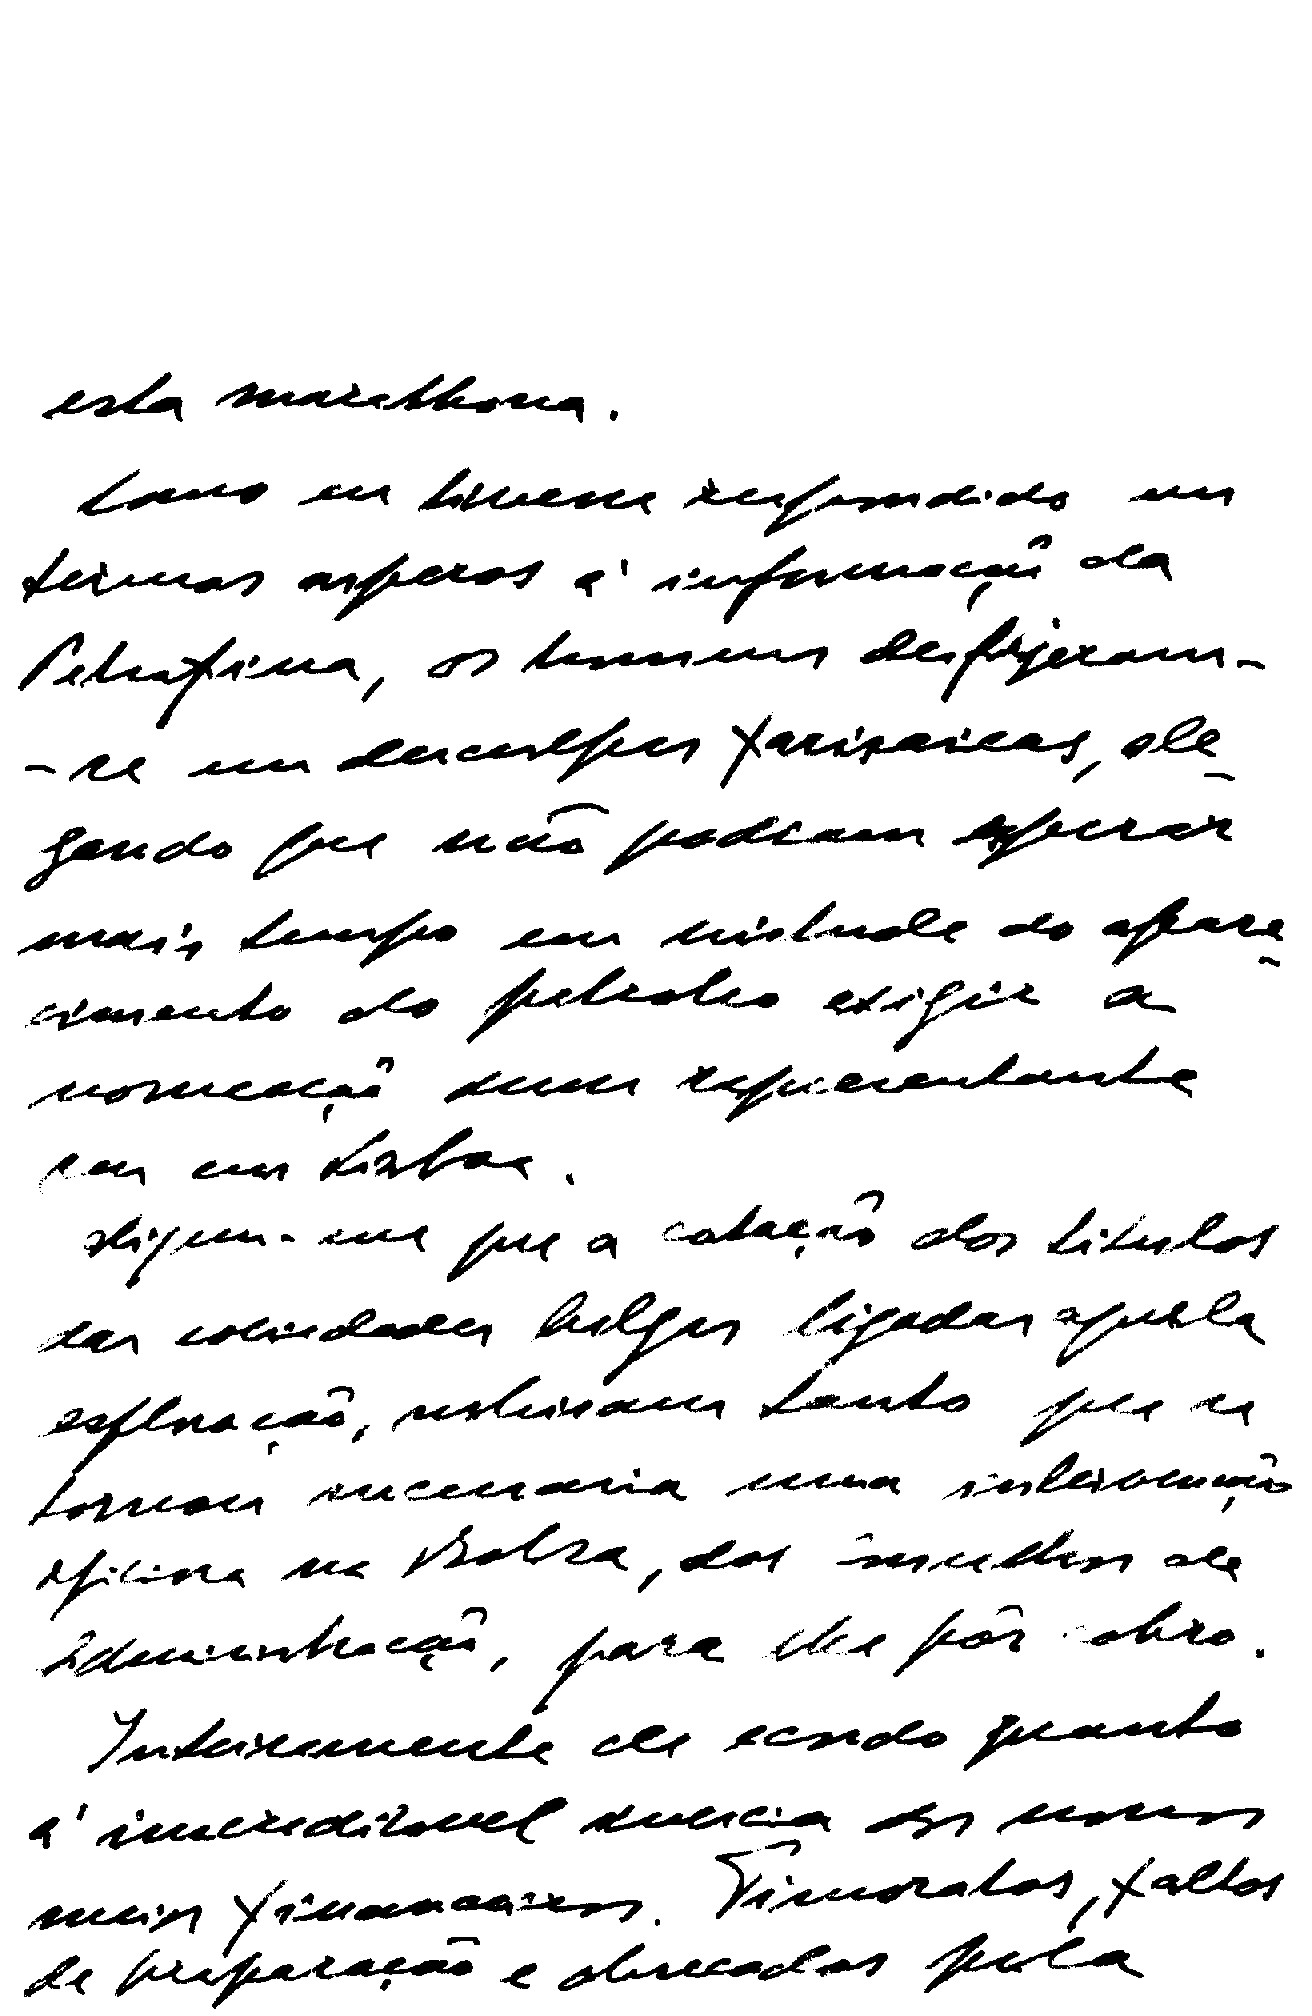 esta marathona.
Como eu tivesse respondido em
termos asperos á informação da
Petrofina, os homens desfizeram-
-se em desculpas farisaicas, ale
gando que não podiam esperar
mais tempo em virtude do apare
cimento do petroleo exigir a
nomeação dum representante
seu em Lisboa.
Dizem-me que a cotação dos titulos
das sociedades belgas ligadas aquela
exploração, subiram tanto que se
tornou necessaria uma intervenção
oficiosa na Bolsa, dos membros de
administração, para lhe pôr cobro.
Inteiramente de acordo quanto
á incredivel inercia dos nossos
meios financeiros. Timoratos, faltos
de preparação e obsecados pela